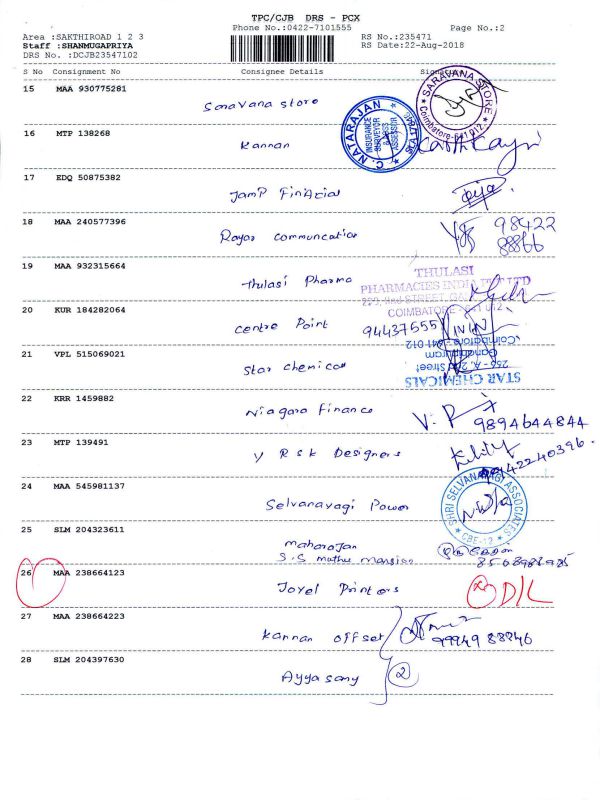 TPC/CJB DRS - PCX
Phone No.:0422-7101555 Page No.:2
Area :SAKTHIROAD 1 2 3 RS No.:235471
Staff :SHANMUGAPRIYA RS Date:22-Aug-2018
DRS No. :DCJB23547102
S No Consignment No Consignee Details
15 MAA 930775281 Saravana store
SARAVANA STORE
Coimbatore-641 012
16 MTP 138268 Kannan
C. NATARAJAN
INSURANCE SURVEYOR & LOSS ASSESSOR
17 EDQ 50875382
18 MAA 240577396 Rayar communcation 98422
88866
19 MAA 932315664 Thulasi Pharma
THULASI
PHARMACIES INDIA PVT LTD
COIMBATORE - 641 012
20 KUR 184282064 Centre Point 94437555
21 VPL 515069021 Star chemical
STAR CHEMICALS
Gandhipuram
Coimbatore - 641 012
22 KRR 1459882 Niagara Finance
9894644844
23 MTP 139491 Y R S K Designers
24 MAA 545981137 Selvanayagi Power
SHRI SELVANAYAGI ASSOCIATES
CBE-12
25 SLM 204323611 maharajan
S.S muthu mansion
26 MAA 238664123 Joyel Printers D/L
27 MAA 238664223 Kannan offset
28 SLM 204397630 Ayyasamy 2